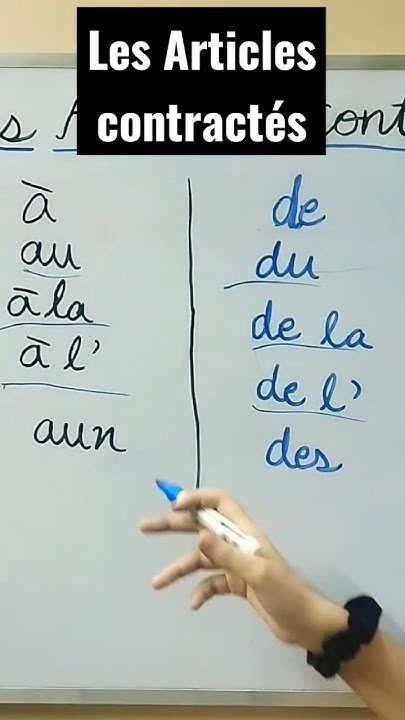 Les Articles
contractés
s A cont
à
au
à la
à l'
aux
de
du
de la
de l'
des